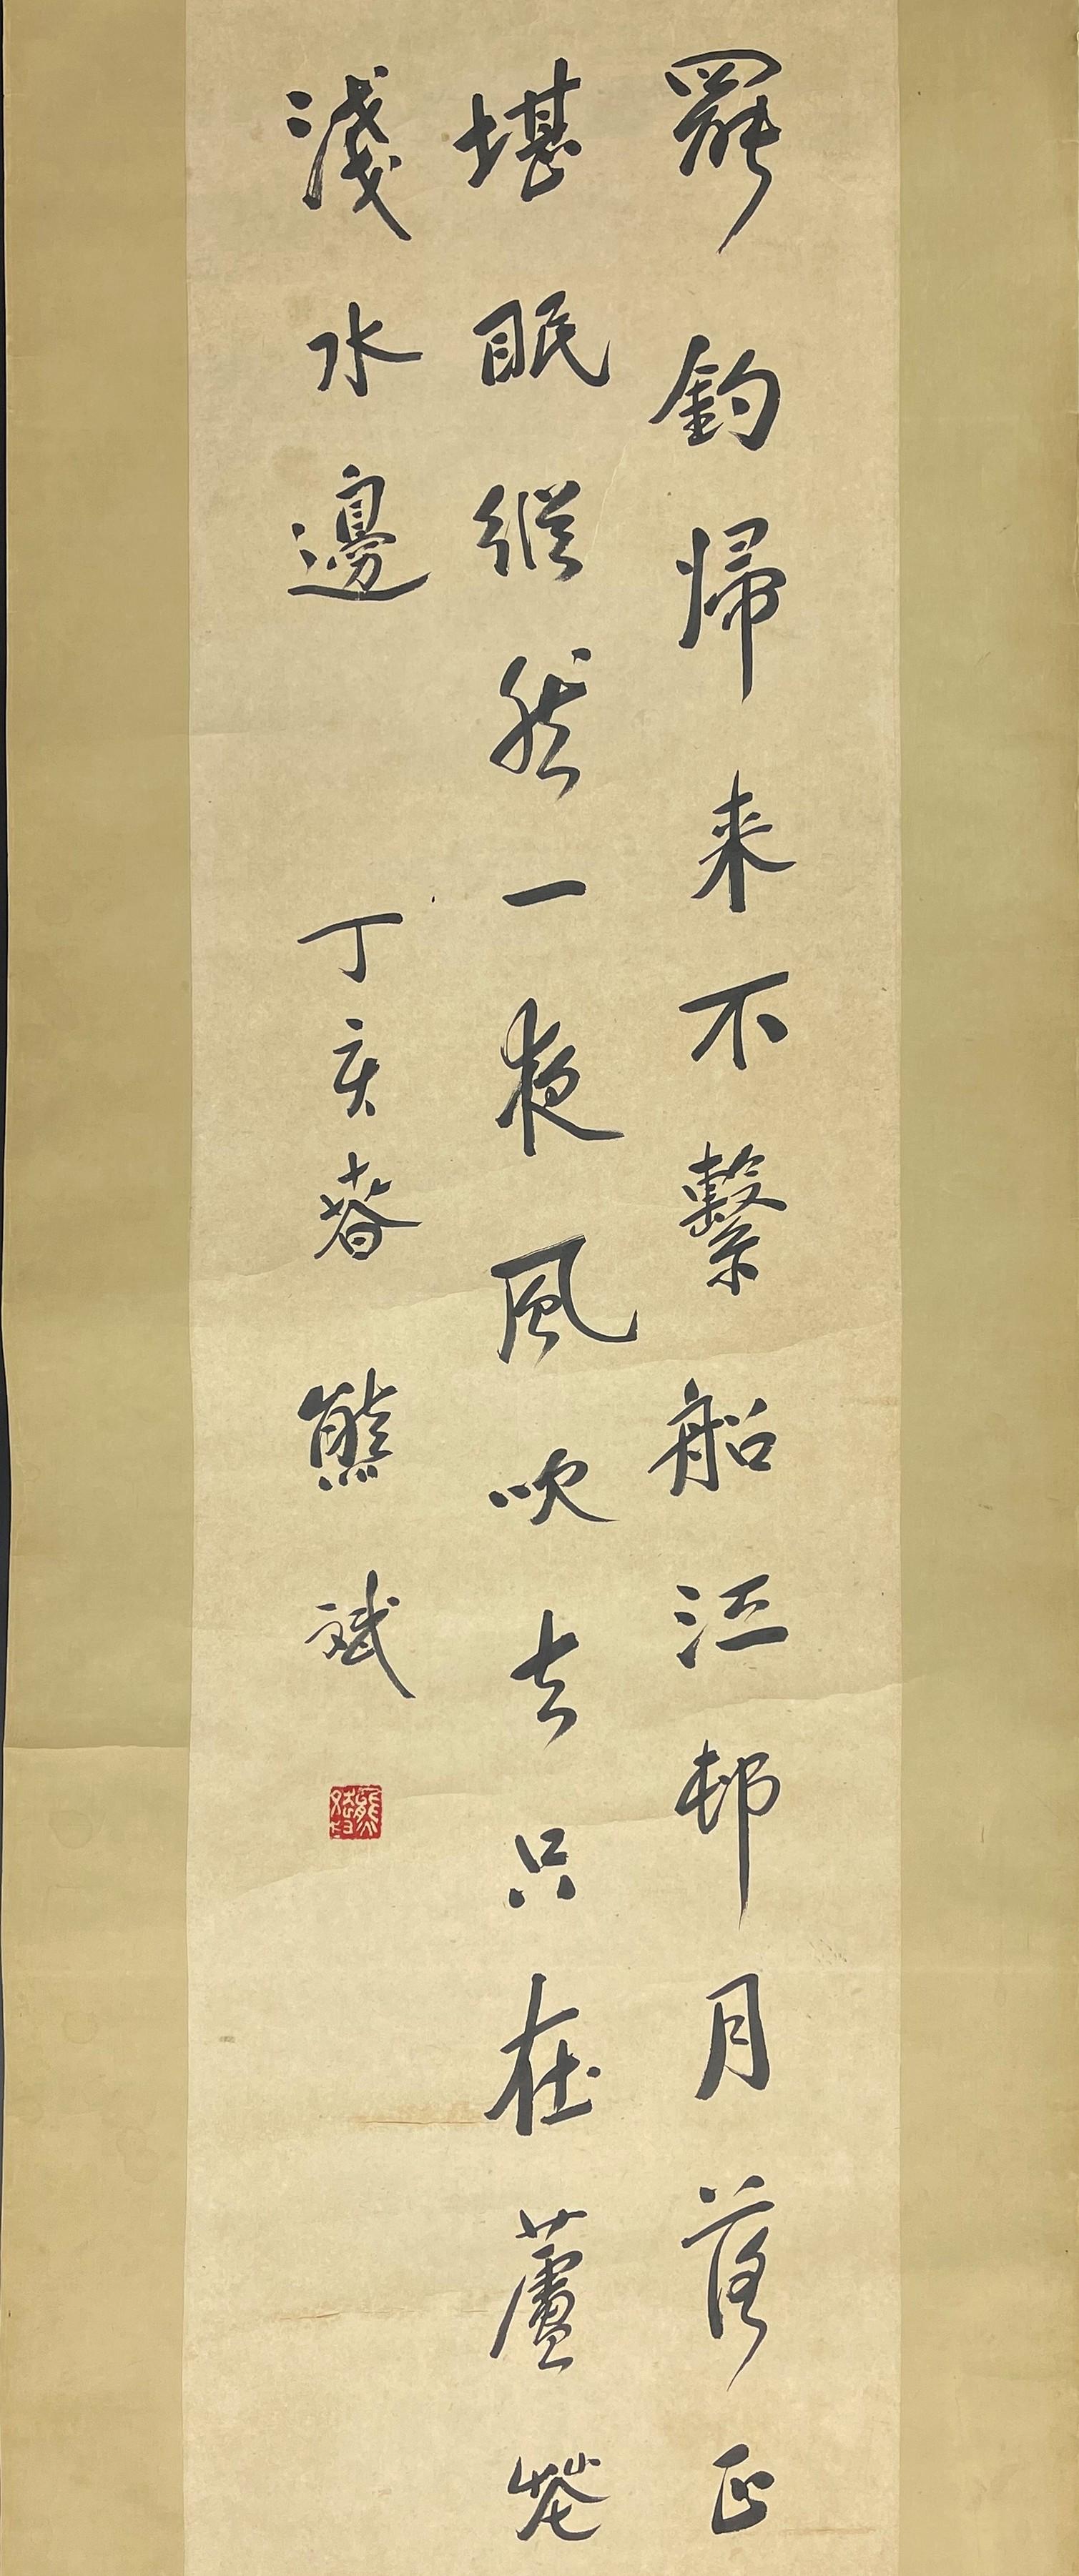 罷釣歸来不繫船江邨月落正
堪眠縱然一夜風吹去只在蘆花
淺水邊 丁亥春 熊斌